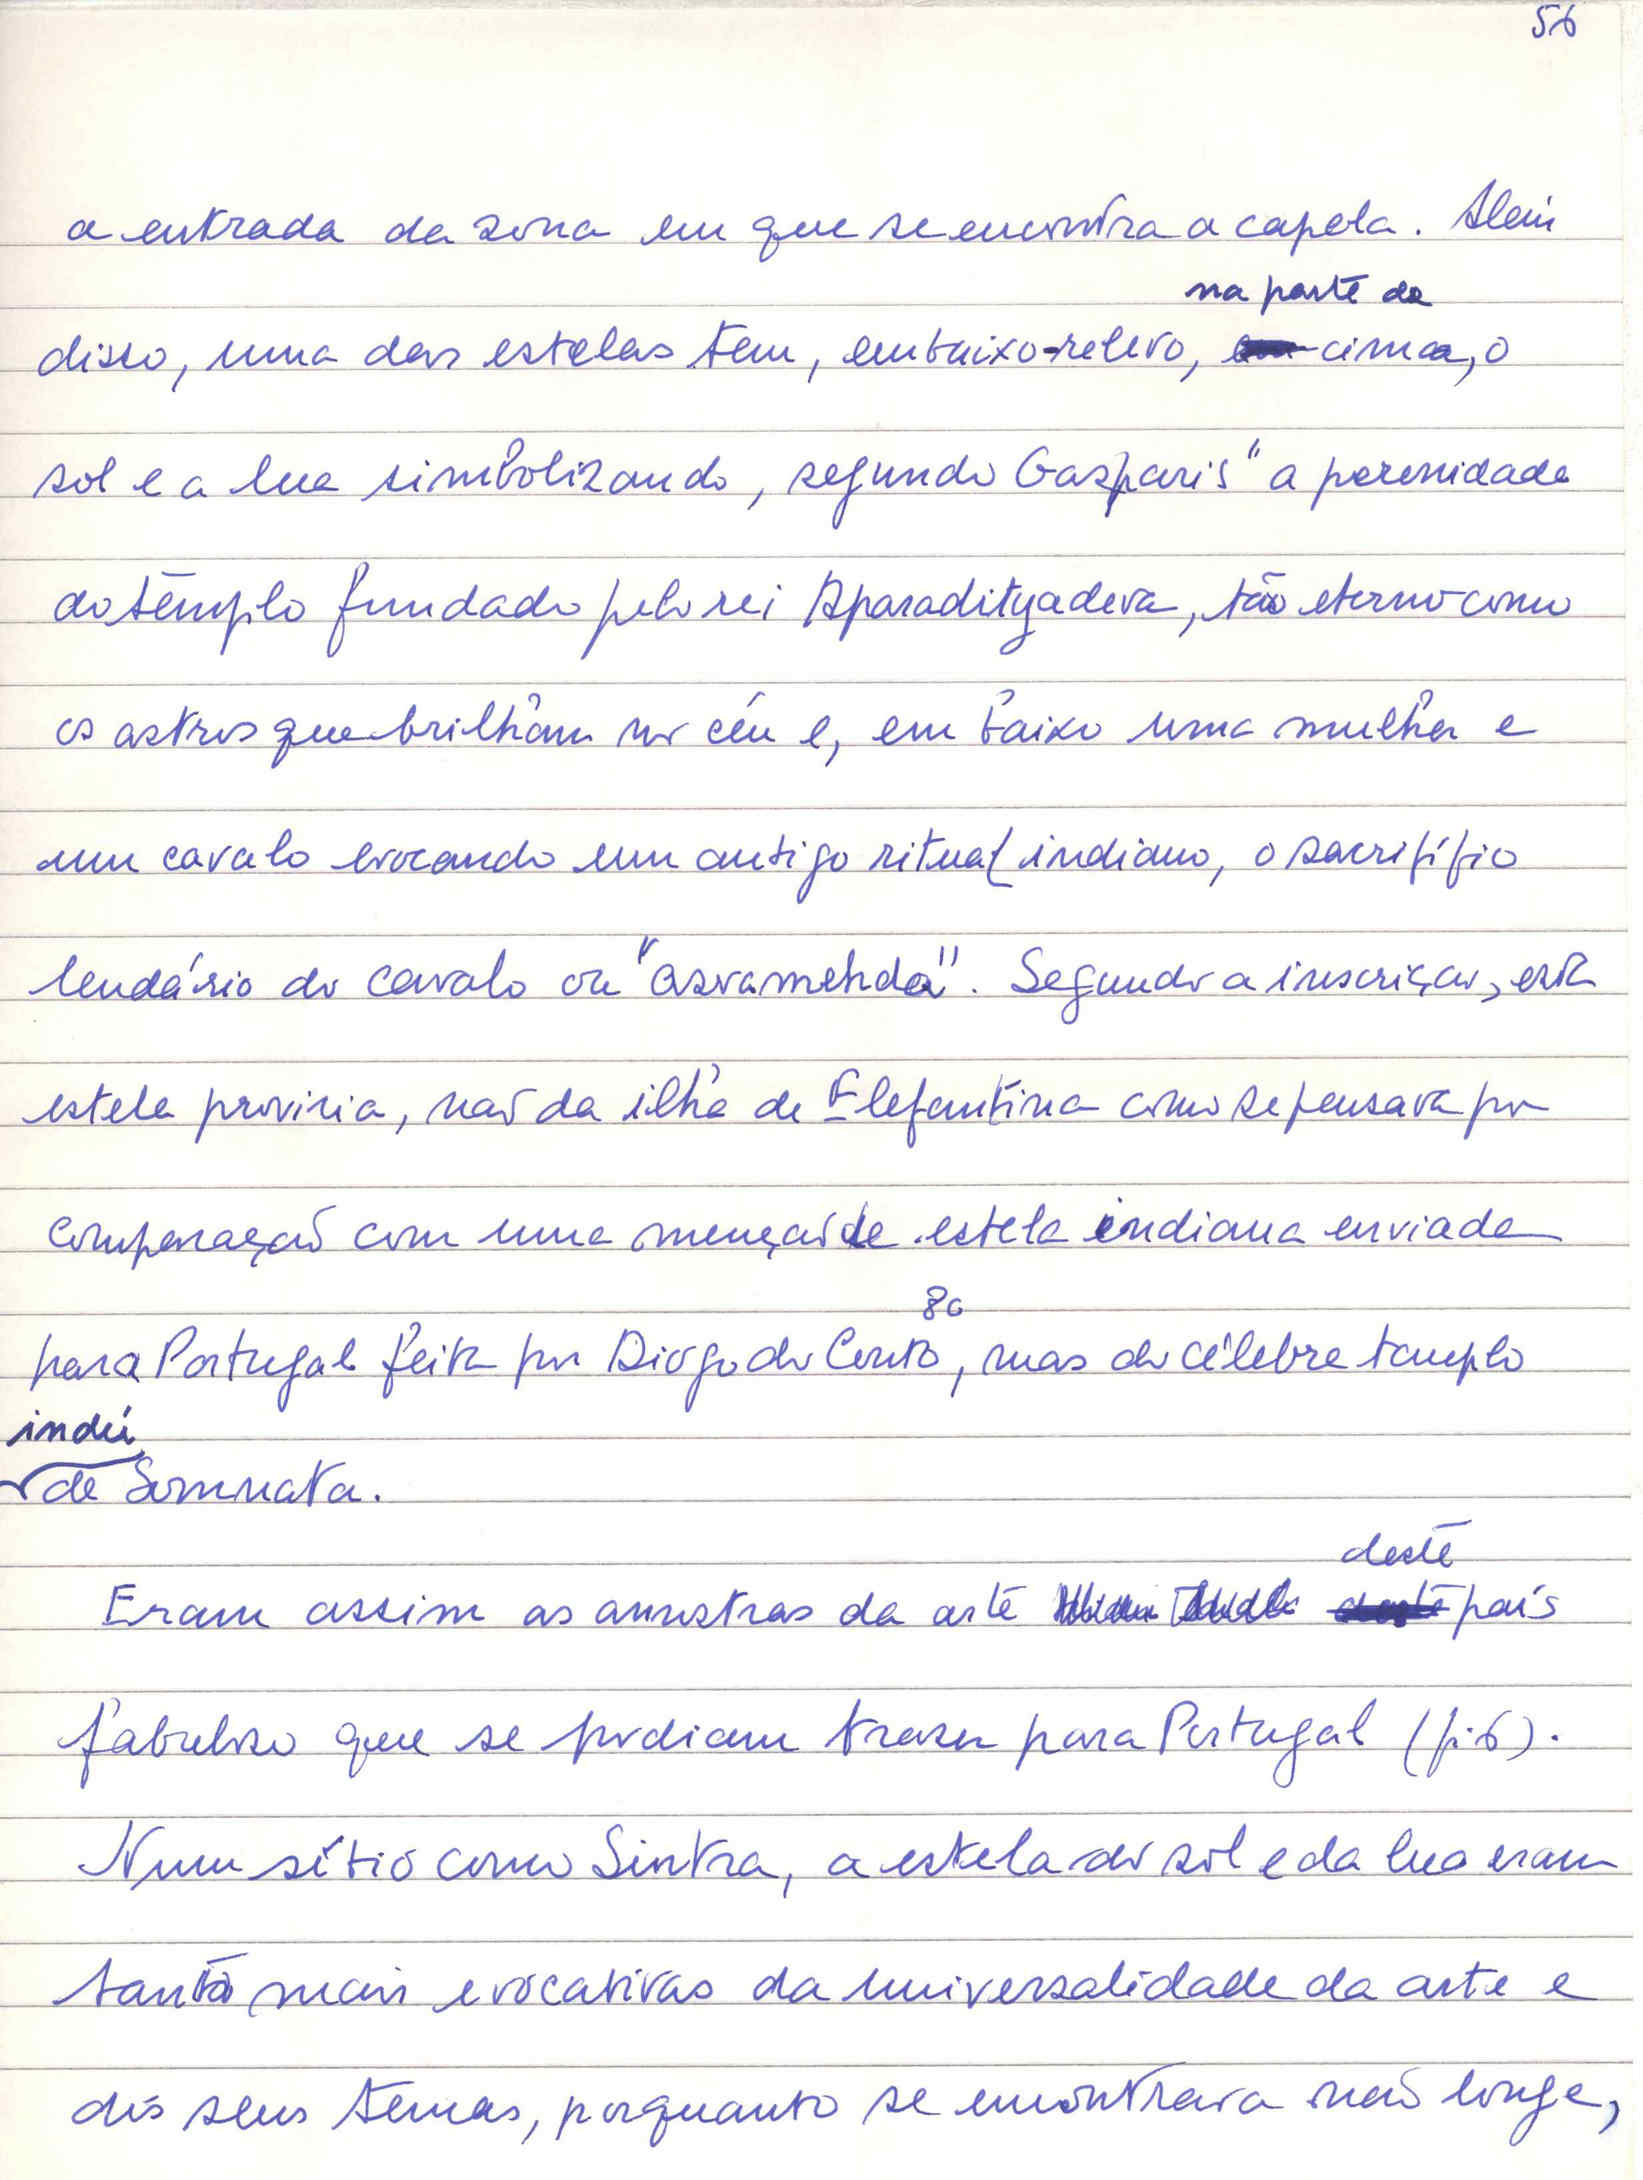 56
a entrada da zona em que se encontra a capela. Alem
na parte de
disso, uma das estelas tem, em baixo-relevo, cima, o
sol e a lua simbolizando, segundo Gasparis "a perenidade
do templo fundado pelo rei Aparadityadeva, tão eterno como
os astros que brilham no céu e, em baixo uma mulher e
um cavalo evocando um antigo ritual indiano, o sacrifífio
lendário do cavalo ou "asvamehda". Segundo a inscrição, esta
estela proviria, não da ilha de Elefantina como se pensava por
comparação com uma menção de estela indiana enviada
80
para Portugal feita por Diogo do Couto, mas do célebre templo
indú
de Somnata.
deste
Eram assim as amostras da arte país
fabuloso que se podiam trazer para Portugal (fi6).
Num sítio como Sintra, a estela do sol e da lua eram
tanto mais evocativas da universalidade da arte e
dos seus temas, porquanto se encontrava não longe,